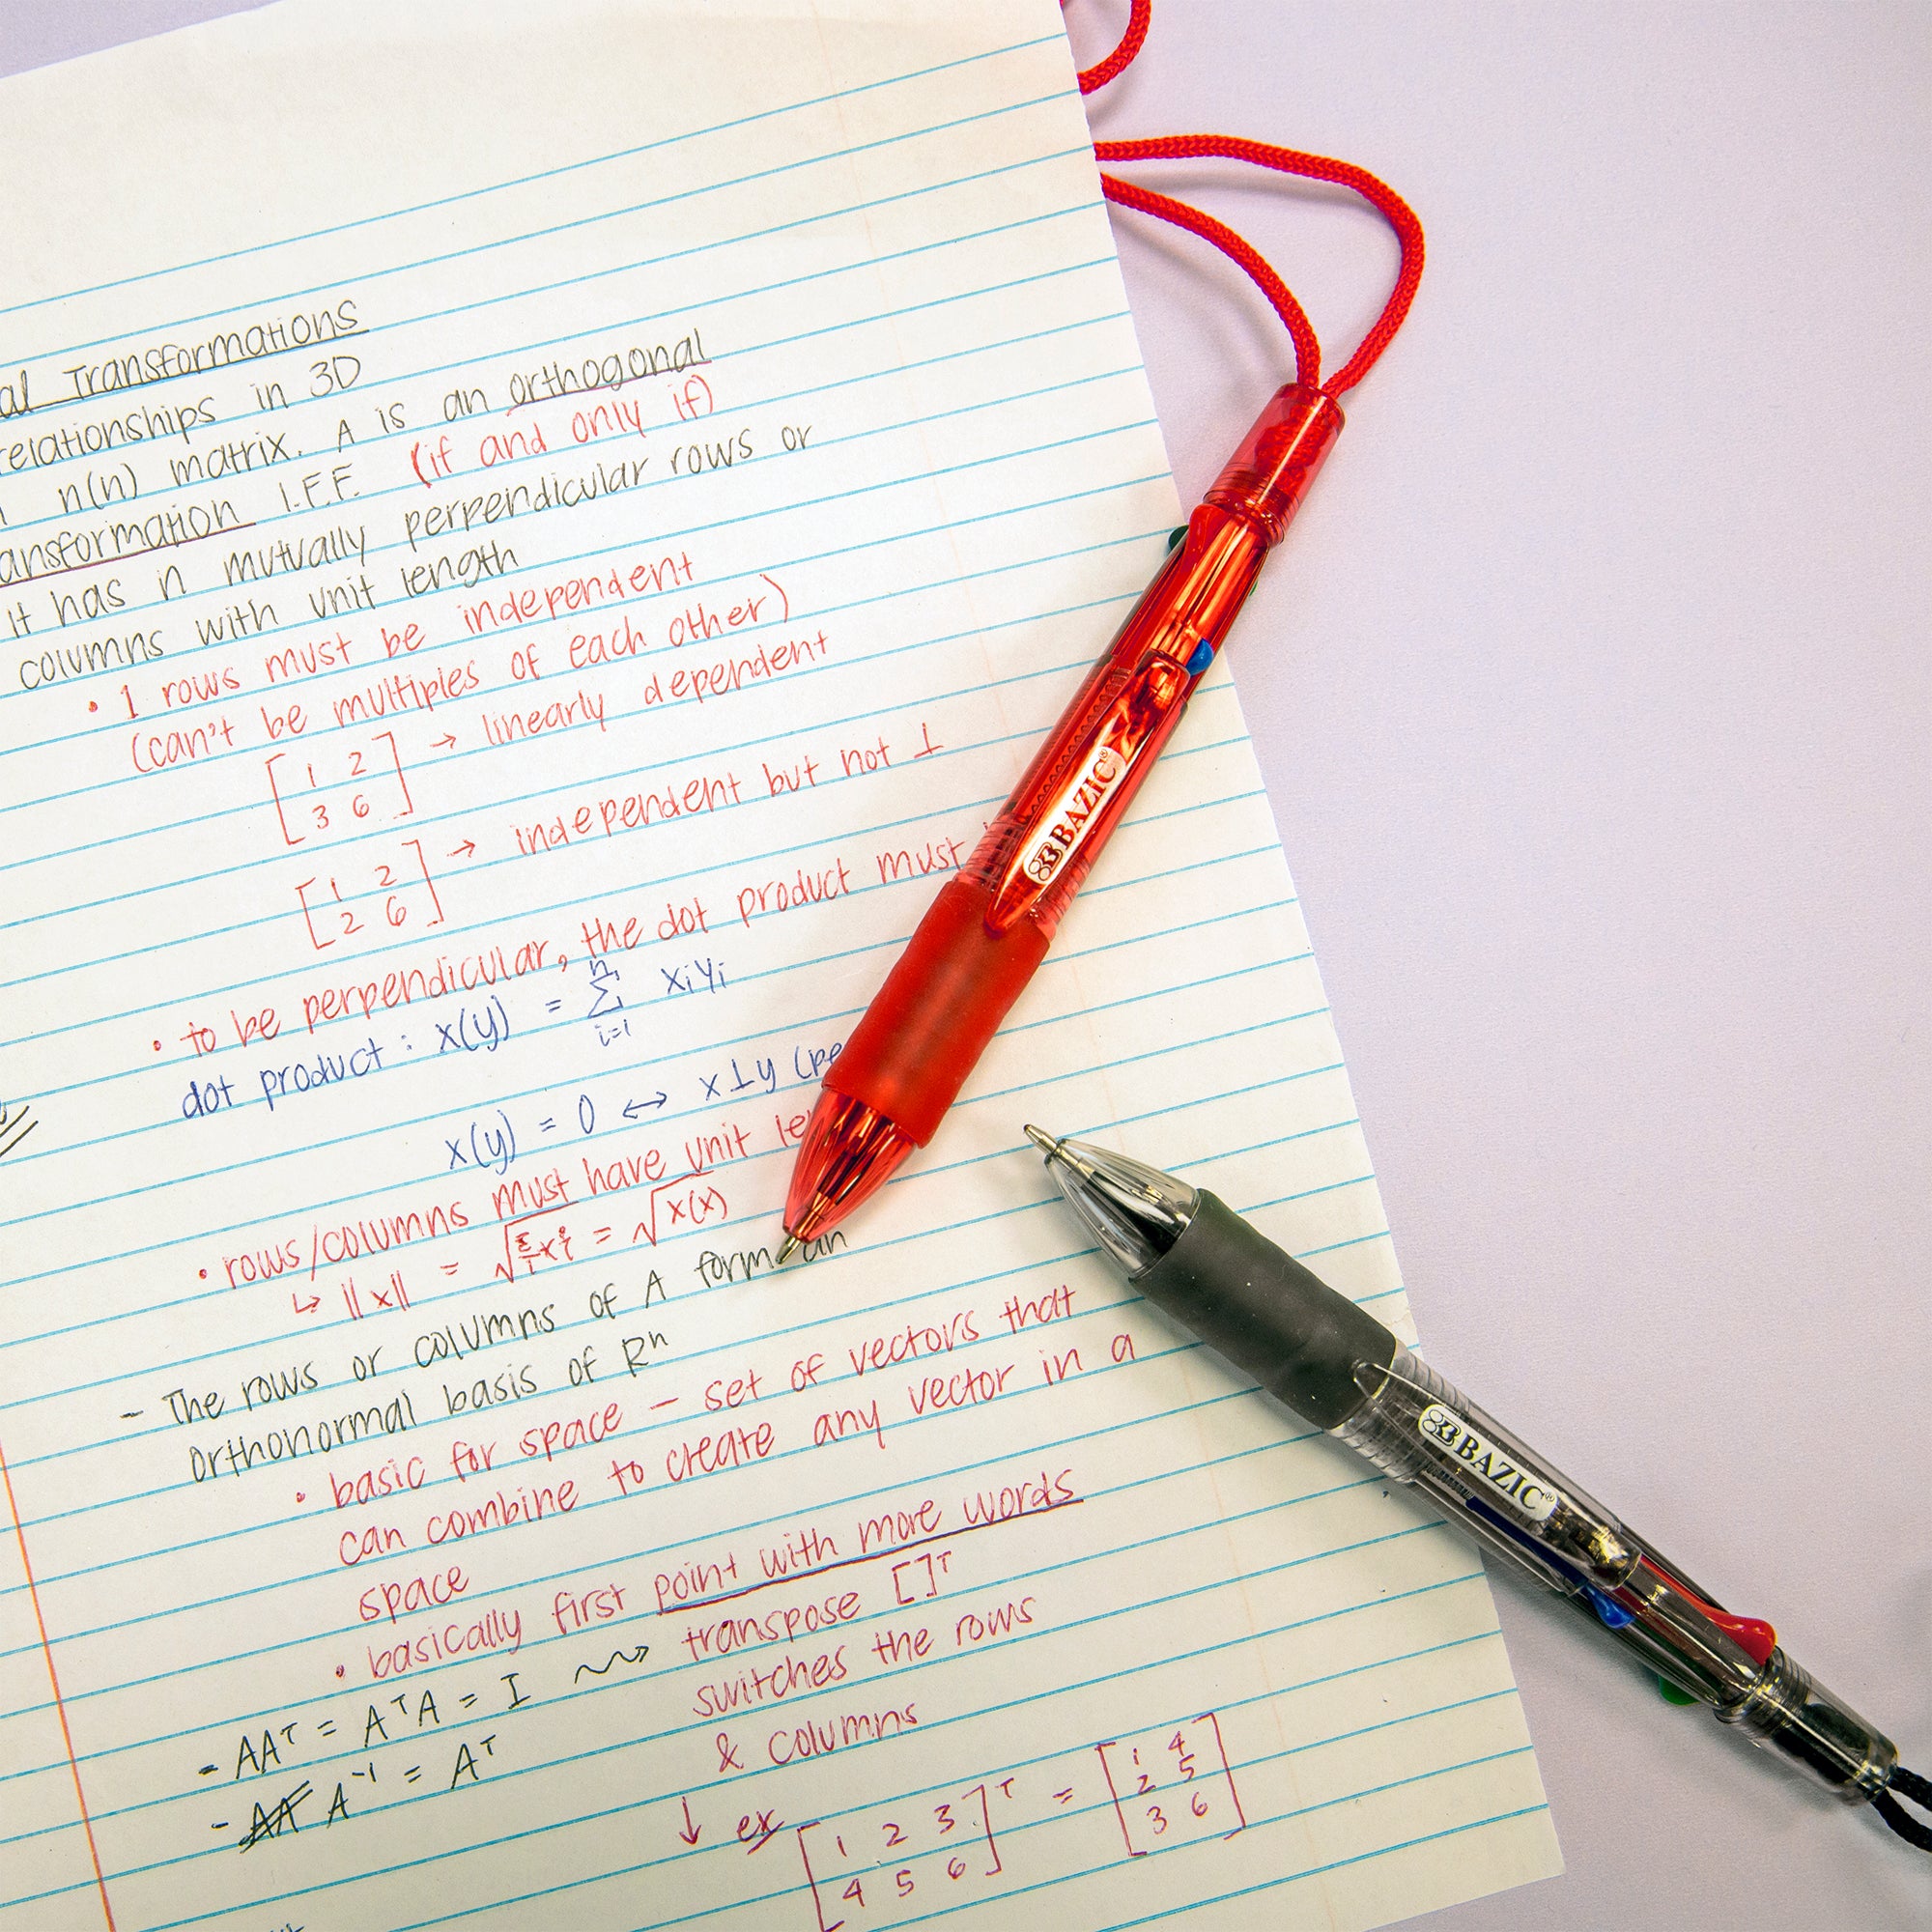 al Transformations
relationships in 3D
n(n) matrix. A is an orthogonal
ansformation I.F.F. (if and only if)
it has n mutually perpendicular rows or
columns with unit length
• 1 rows must be independent
(can't be multiples of each other)
[1 2
3 6] → linearly dependent
[1 2
2 6] → independent but not ⊥
• to be perpendicular, the dot product must
dot product : x(y) = n Σ i=1 xiyi
x(y) = 0 ↔ x⊥y (pe
• rows/columns must have unit le
↳ ||x|| = √Σxi² = √x(x)
- The rows or columns of A form an
orthonormal basis of Rⁿ
• basic for space – set of vectors that
can combine to create any vector in a
space
• basically first point with more words
- AAᵀ = AᵀA = I transpose []ᵀ
switches the rows
& columns
- AA A⁻¹ = Aᵀ
↓ ex [1 2 3
4 5 6]ᵀ = [1 4
2 5
3 6]
BAZIC®
BAZIC®